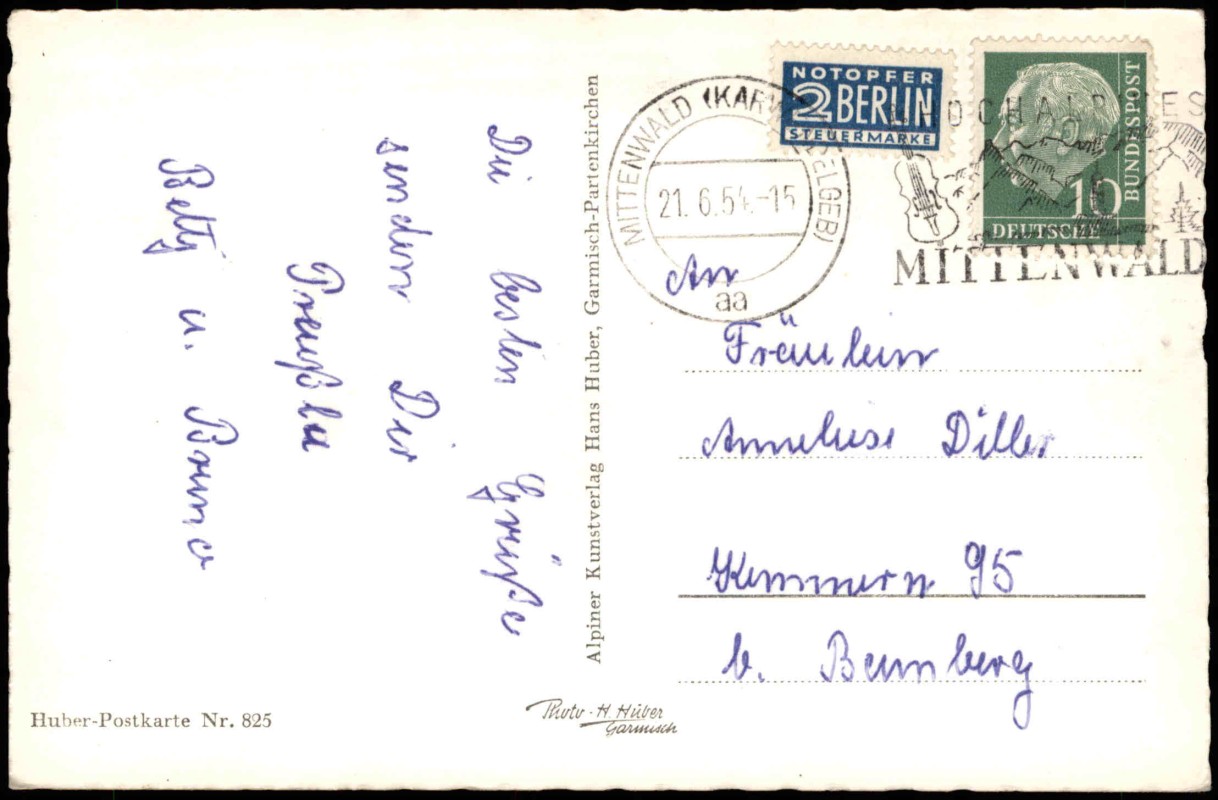 Die besten Grüße
senden Dir
Betty u. Bruno
Huber-Postkarte Nr. 825
Alpiner Kunstverlag Hans Huber, Garmisch-Partenkirchen
Photo-H. Huber
Garmisch
MITTENWALD (KAR
ELGEB)
21.6.54.-15
aa
NOTOPFER
2 BERLIN
STEUERMARKE
DEUTSCHE
BUNDESPOST
10
MITTENWALD
An
Fräulein
Anneliese Diller
Kemmern 95
b. Bamberg